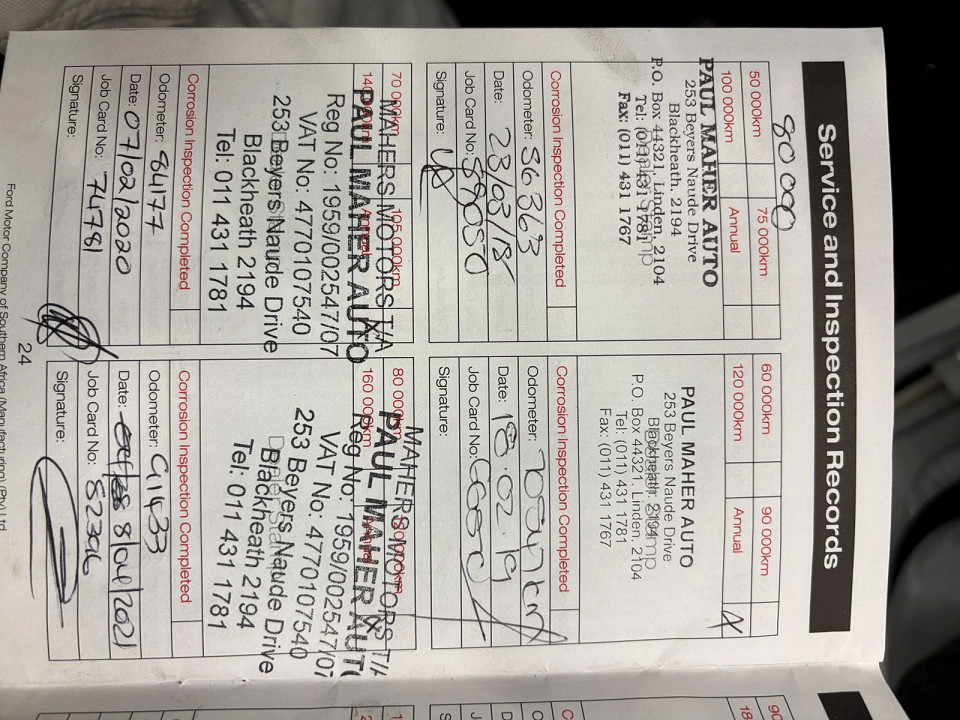 Service and Inspection Records
80 000
50 000km 75 000km
100 000km Annual
PAUL MAHER AUTO
253 Beyers Naude Drive
Blackheath. 2194
P.O. Box 44321, Linden, 2104
Tel: (011) 431 1781
Fax: (011) 431 1767
Corrosion Inspection Completed
Odometer: 36363
Date: 23/03/18
Job Card No:
Signature:
60 000km 90 000km
120 000km Annual X
PAUL MAHER AUTO
253 Beyers Naude Drive
Blackheath. 2194
P.O. Box 44321, Linden, 2104
Tel: (011) 431 1781
Fax: (011) 431 1767
Corrosion Inspection Completed
Odometer:
Date: 18.02.19
Job Card No:
Signature:
70 000km 105 000km
MAHERS MOTORS T/A
PAUL MAHER AUTO
Reg No: 1959/002547/07
VAT No: 4770107540
253 Beyers Naude Drive
Blackheath 2194
Tel: 011 431 1781
Corrosion Inspection Completed
Odometer: 84177
Date: 07/02/2020
Job Card No: 74781
Signature:
80 000km
160 000km
MAHERS MOTORS T/A
PAUL MAHER AUTO
Reg No: 1959/002547/07
VAT No: 4770107540
253 Beyers Naude Drive
Dealer Stamp
Blackheath 2194
Tel: 011 431 1781
Corrosion Inspection Completed
Odometer: 91433
Date: 8/04/2021
Job Card No:
Signature:
24
Ford Motor Company of Southern Africa (Manufacturing) (Pty) Ltd